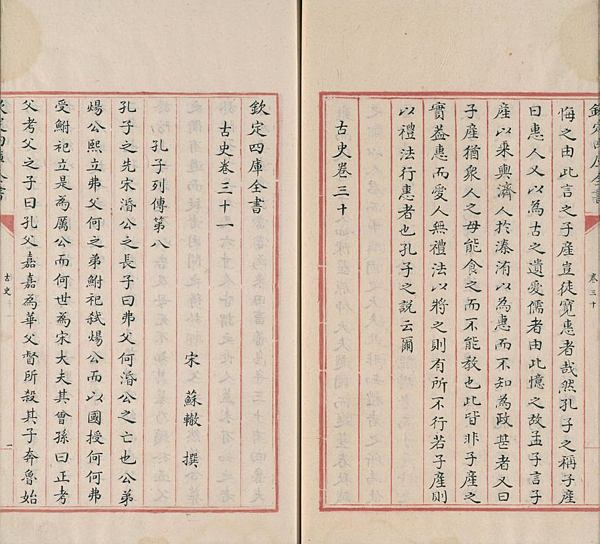 欽定四庫全書
卷三十
悔之由此言之子產豈徒寬惠者哉然孔子之稱子產
曰惠人又以為古之遺愛儒者由此憶之故孟子言子
產以乘輿濟人於溱洧以為惠而不知為政甚者又曰
子產猶衆人之母能食之而不能教也此皆非子產之
實葢惠而愛人無禮法以將之則有所不行若子產則
以禮法行惠者也孔子之說云爾
古史卷三十
欽定四庫全書
古史卷三十一
宋 蘇轍 撰
孔子列傳第八
孔子之先宋湣公之長子曰弗父何湣公之亡也公弟
煬公熙立弗父何之弟鮒祀弑煬公而以國授何何弗
受鮒祀立是為厲公而何世為宋大夫其曾孫曰正考
父考父之子曰孔父嘉嘉為華父督所殺其子奔魯始
欽定四庫全書
古史
一